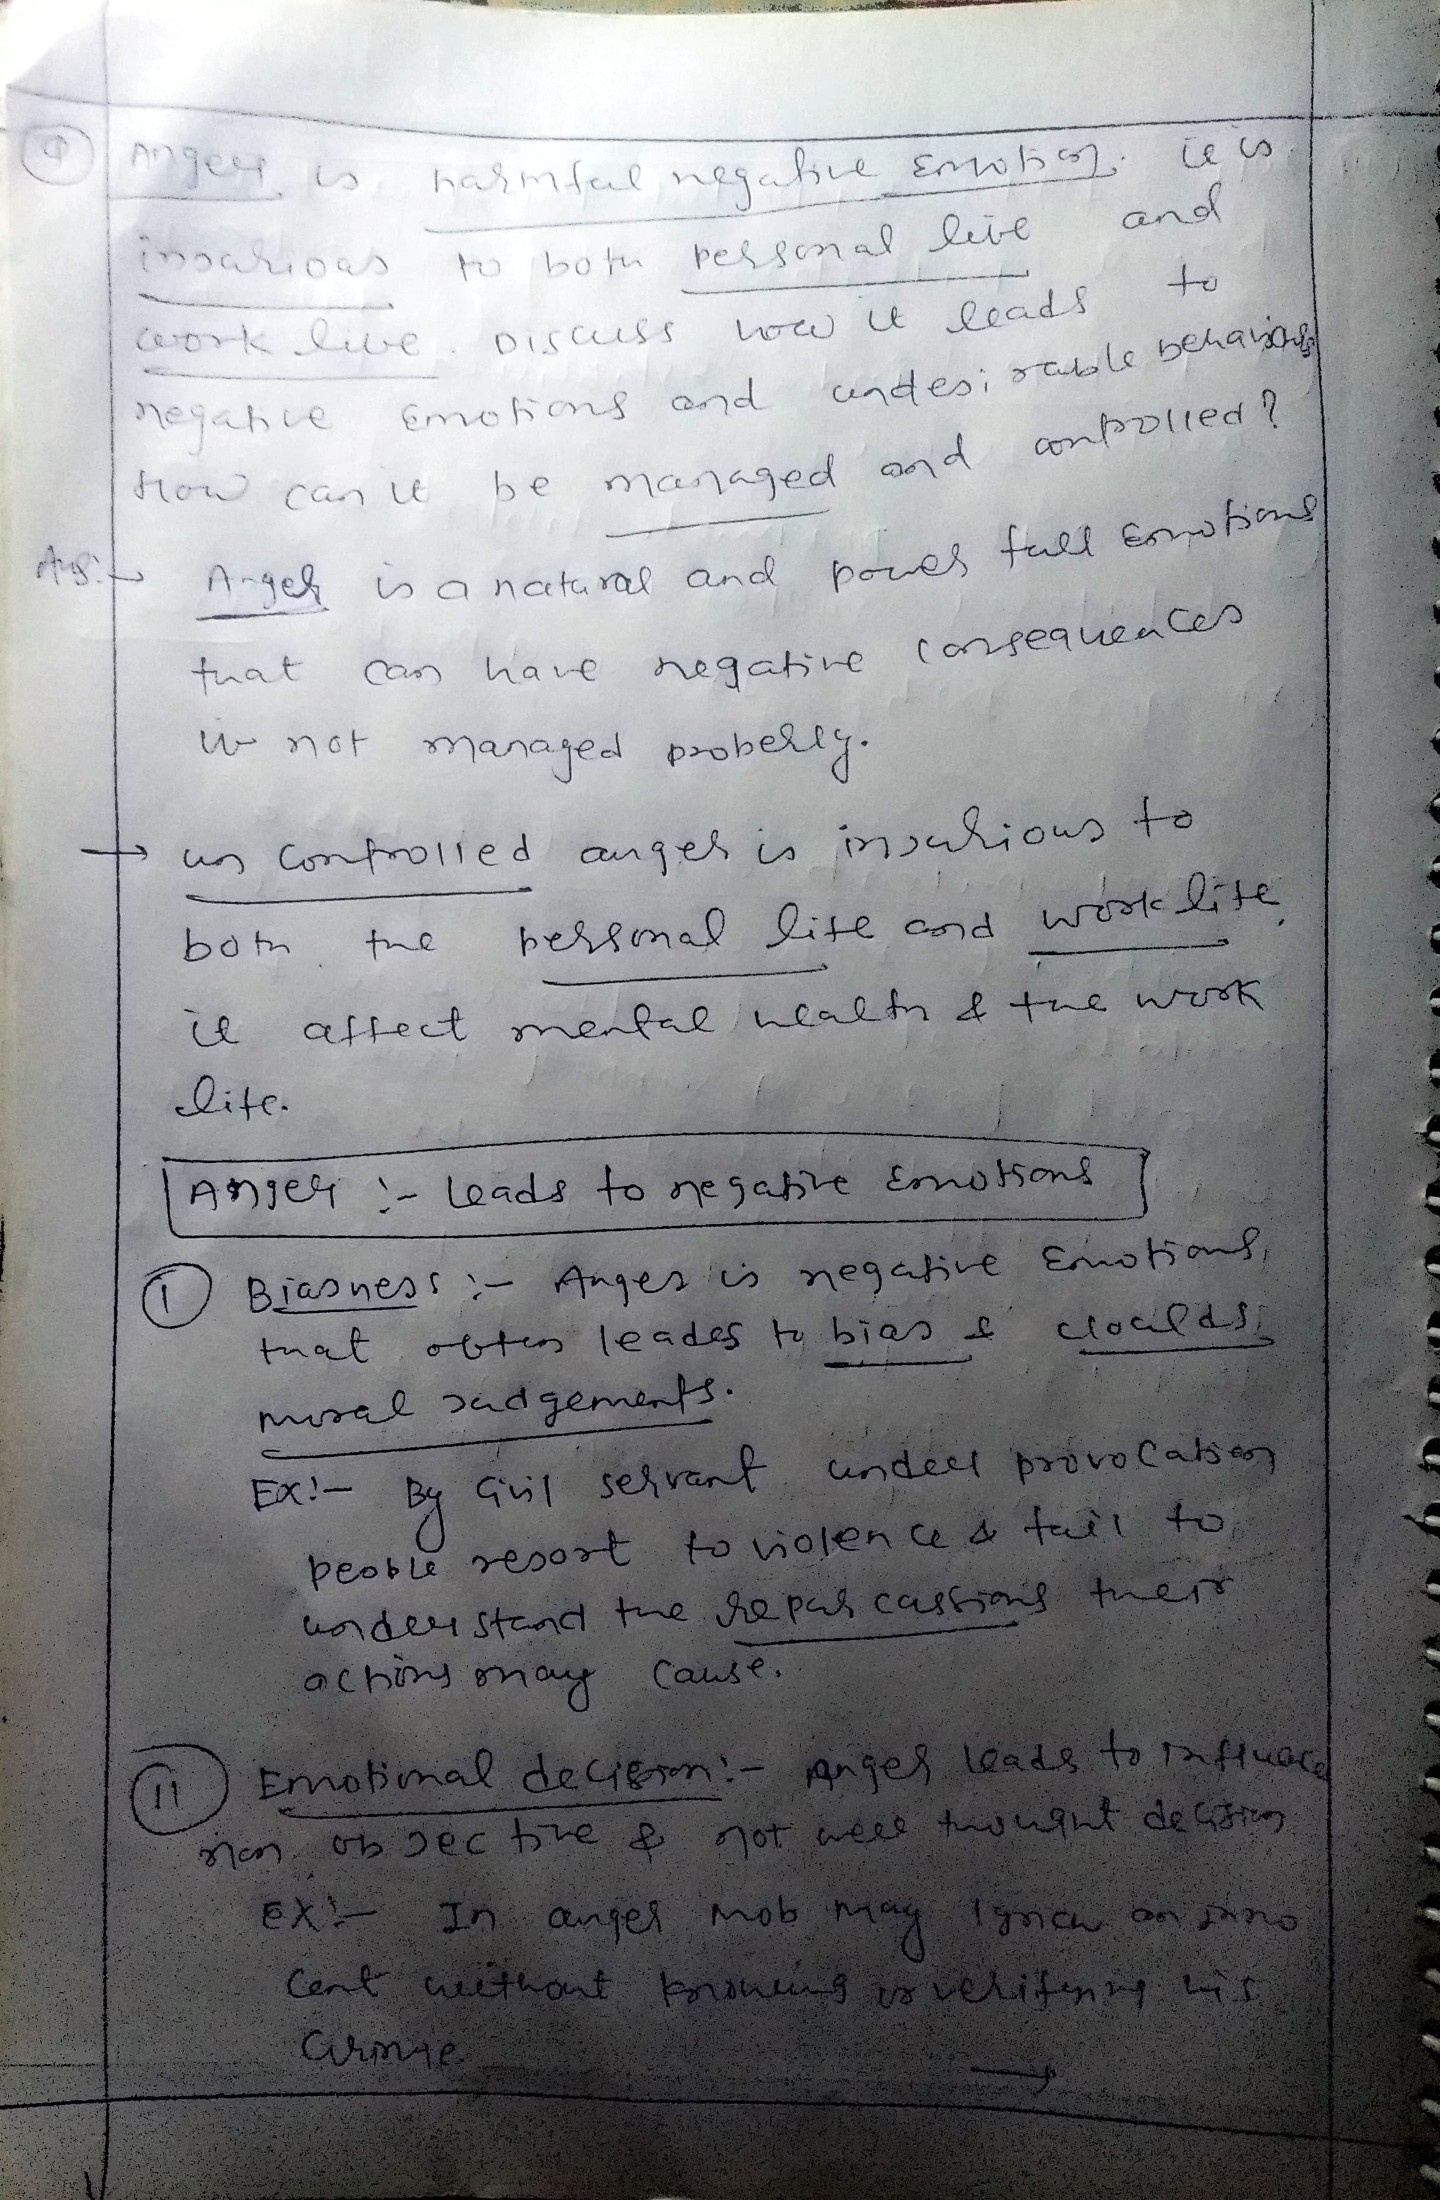 Q Anger is harmful negative Emotion. it is
injurious to both personal live and
work live. Discuss how it leads to
negative emotions and undesirable behaviours
How can it be managed and controlled?
Ans:→ Anger is a natural and power full Emotions
that can have negative consequences
if not managed properly.
→ un controlled anger is injurious to
both the personal life and work life,
it affect mental health & the work
life.
Anger :- Leads to negative Emotions
(I) Biasness :- Anger is negative Emotions,
that often leades to bias & cloulds
moral judgements.
Ex:- By Civil servant under provocation
people resort to violence & fail to
understand the repurcussions their
actions may cause.
(II) Emotional decision:- Anger leads to
non objective & not well thought decision
Ex:- In anger mob may lynch an inno
cent without knowing or verifying his
crime